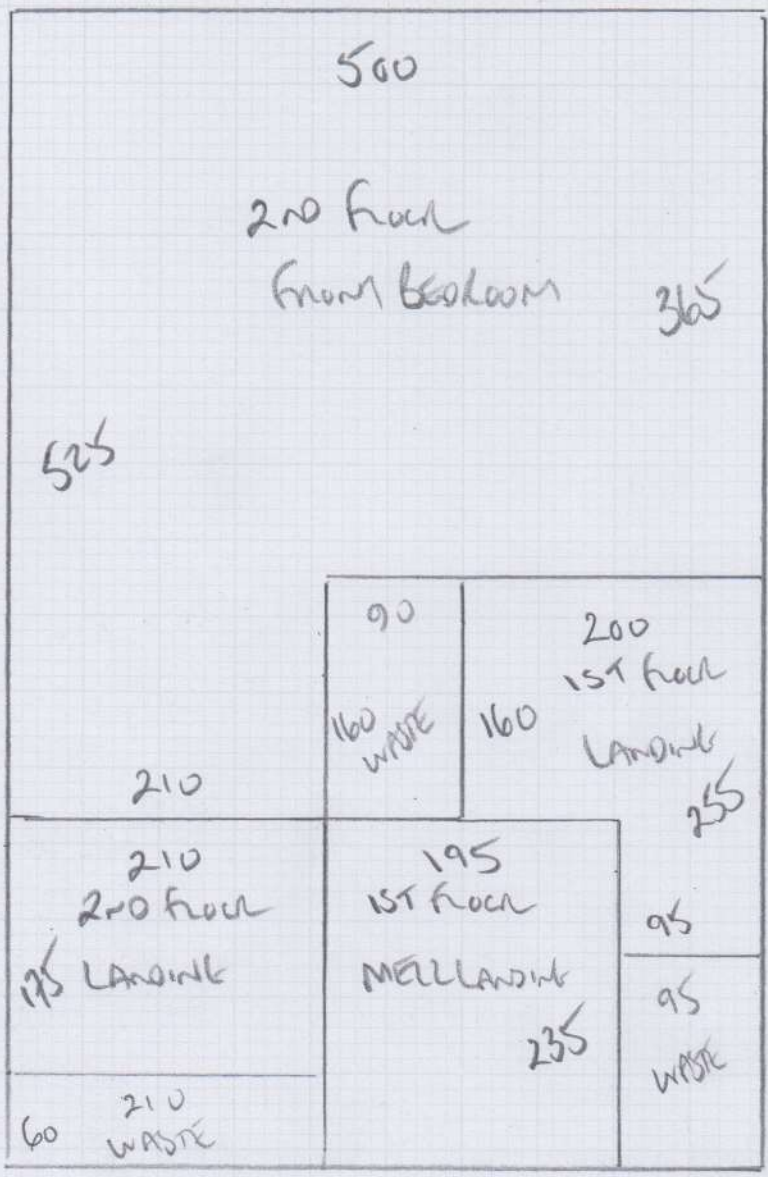 500
2ND FLOOR
FRONT BEDROOM
365
525
90
200
1ST FLOOR
160
WASTE
160
LANDING
255
210
210
2ND FLOOR
175 LANDING
195
1ST FLOOR
MEZZ LANDING
235
95
95
WASTE
60
210
WASTE